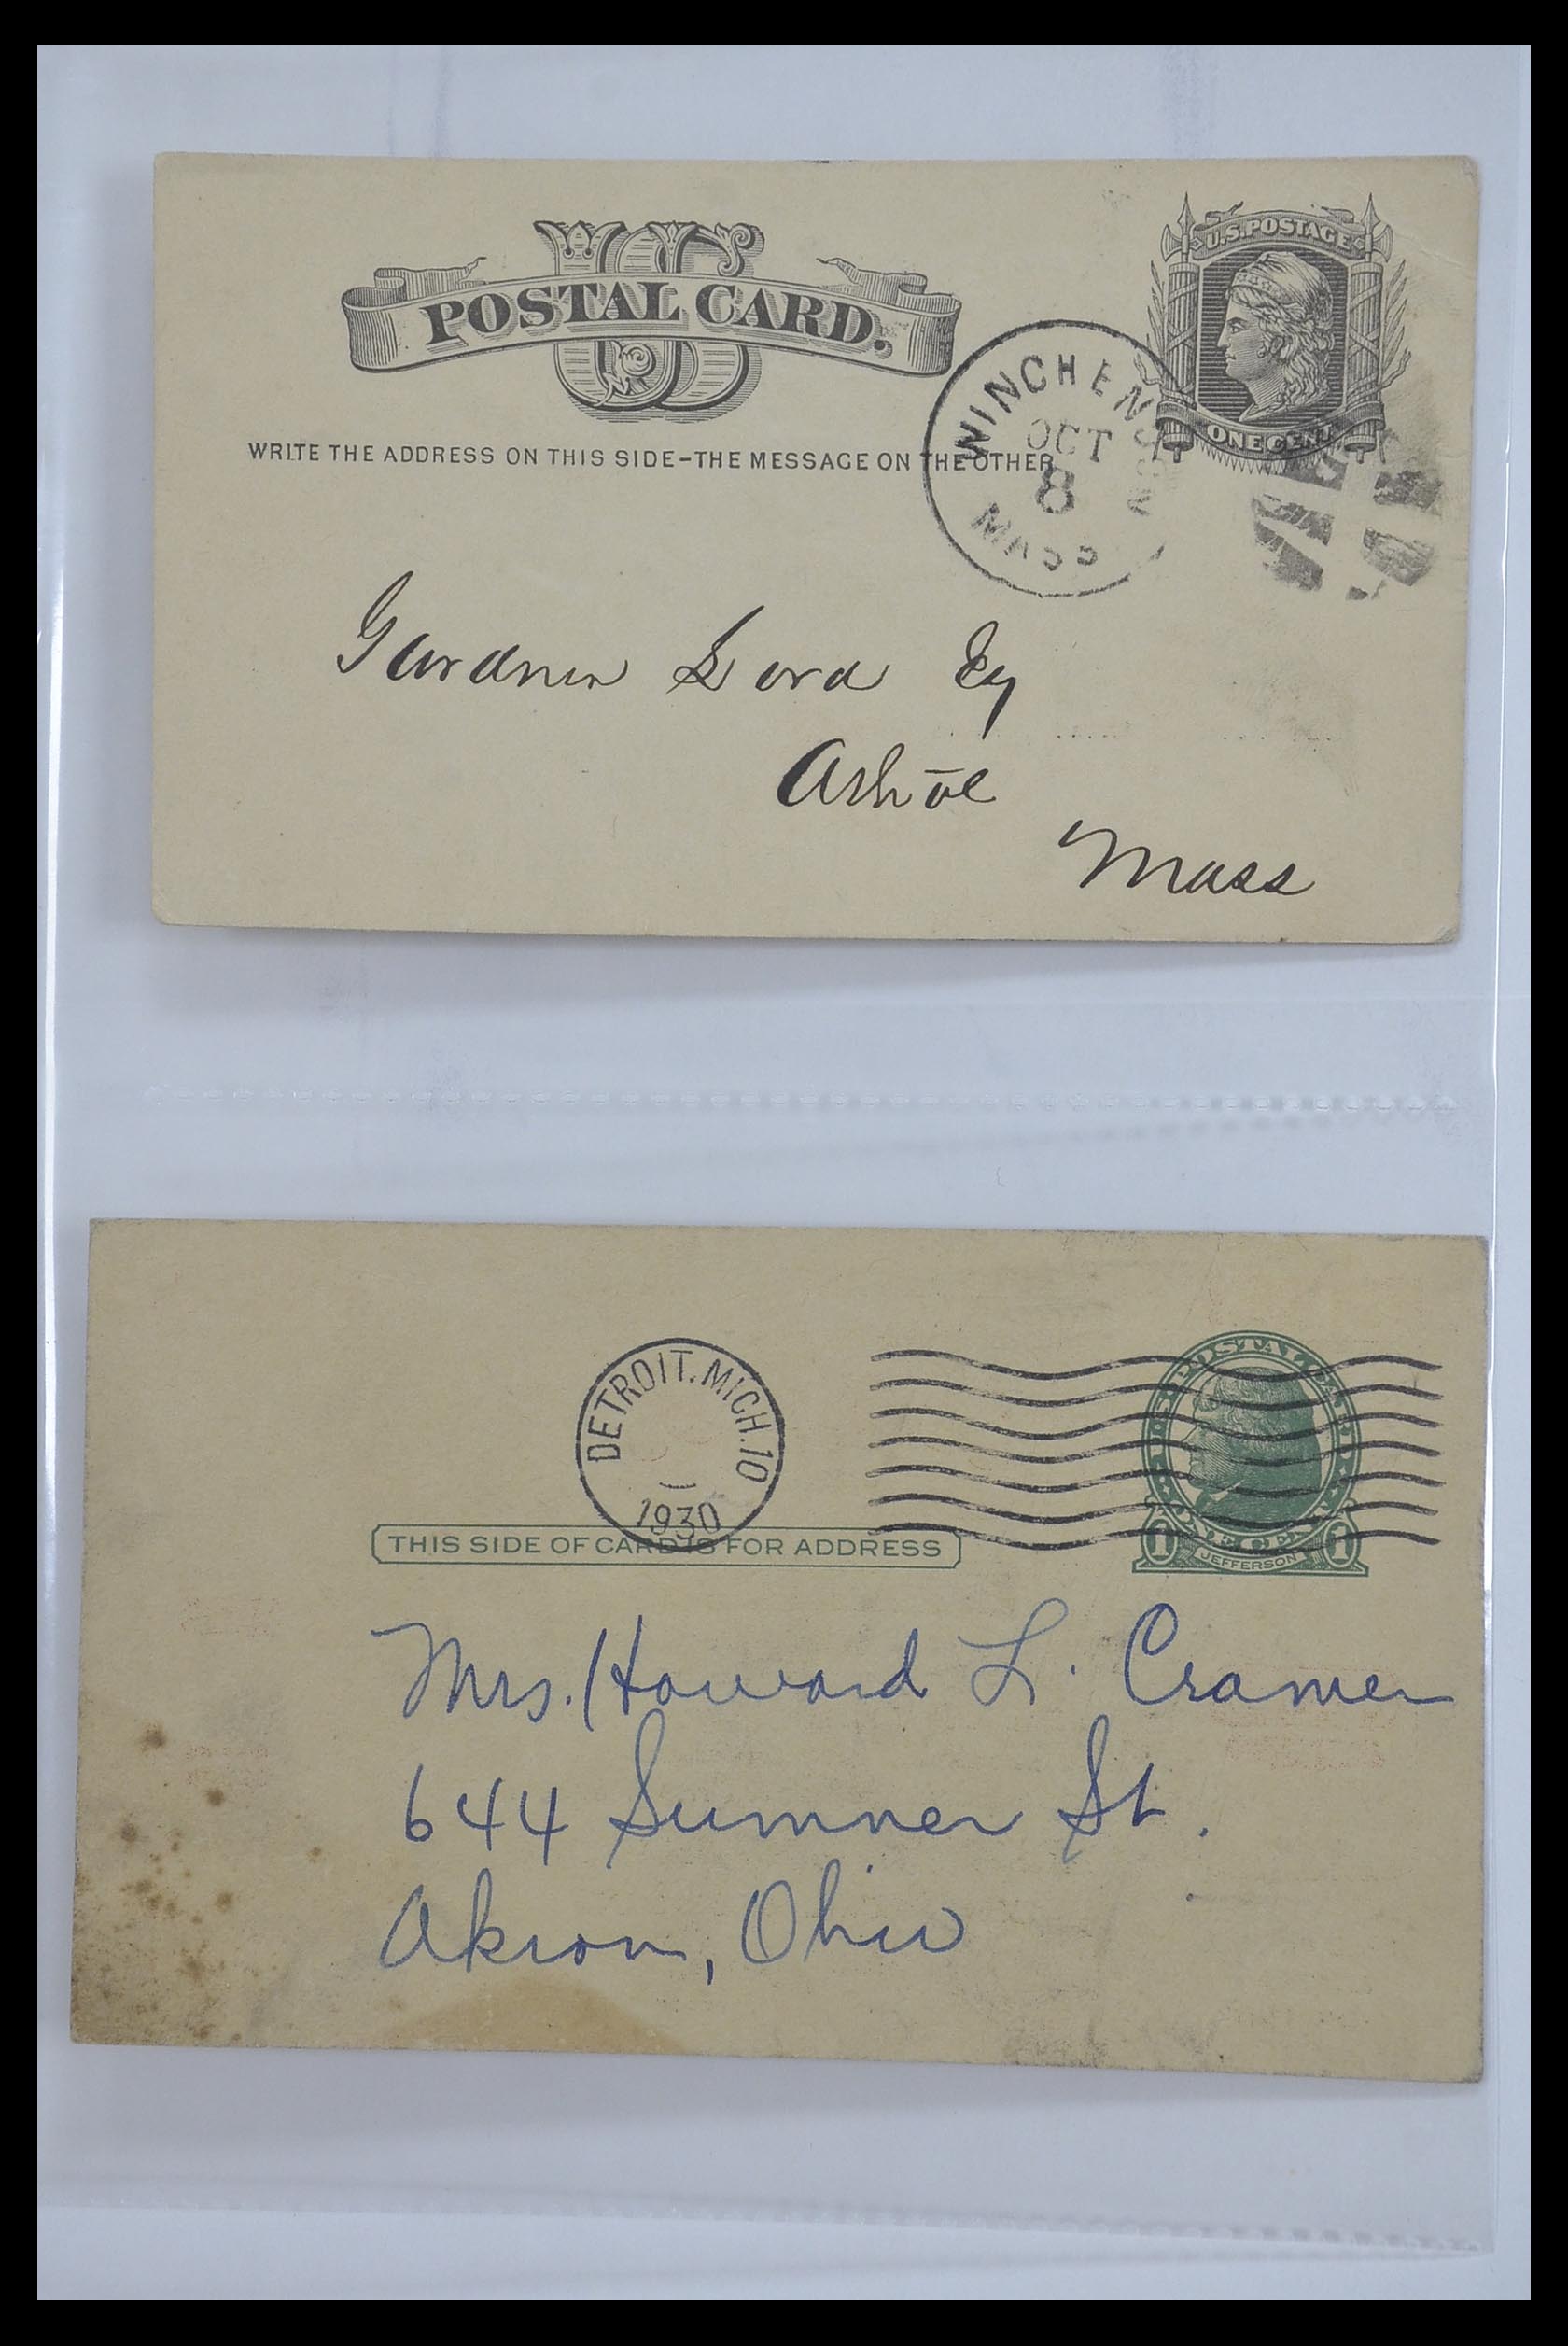 US
POSTAL CARD.
U.S. POSTAGE
ONE CENT
WRITE THE ADDRESS ON THIS SIDE-THE MESSAGE ON THE OTHER
WINCHENDON
OCT
8
MASS
Gardner Lord Eq
Athol
Mass
DETROIT. MICH. 10
1930
U.S. POSTAL CARD
ONE CENT
1 JEFFERSON 1
THIS SIDE OF CARD IS FOR ADDRESS
Mrs. Howard L. Cramer
644 Sumner St.
Akron, Ohio